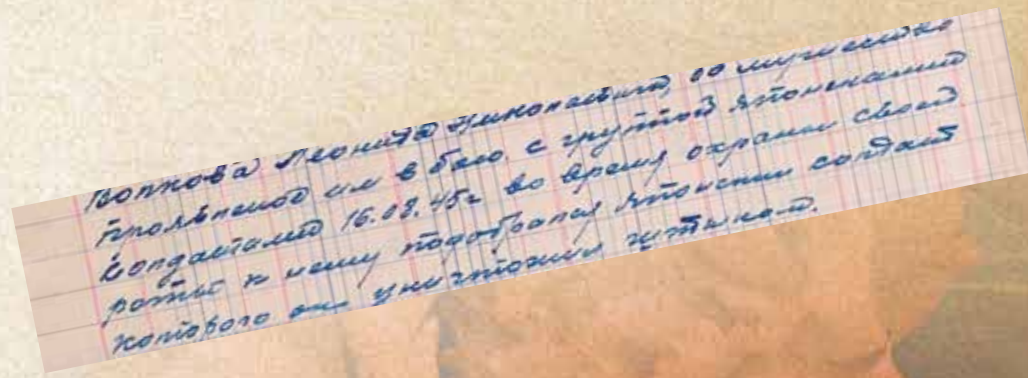 Волкова Леонида Николаевича, за мужество
проявленое им в бою с группой японскими
солдатами 16.08.45г во время охраны своей
роты к нему подобрался японский солдат
которого он уничтожил штыком.